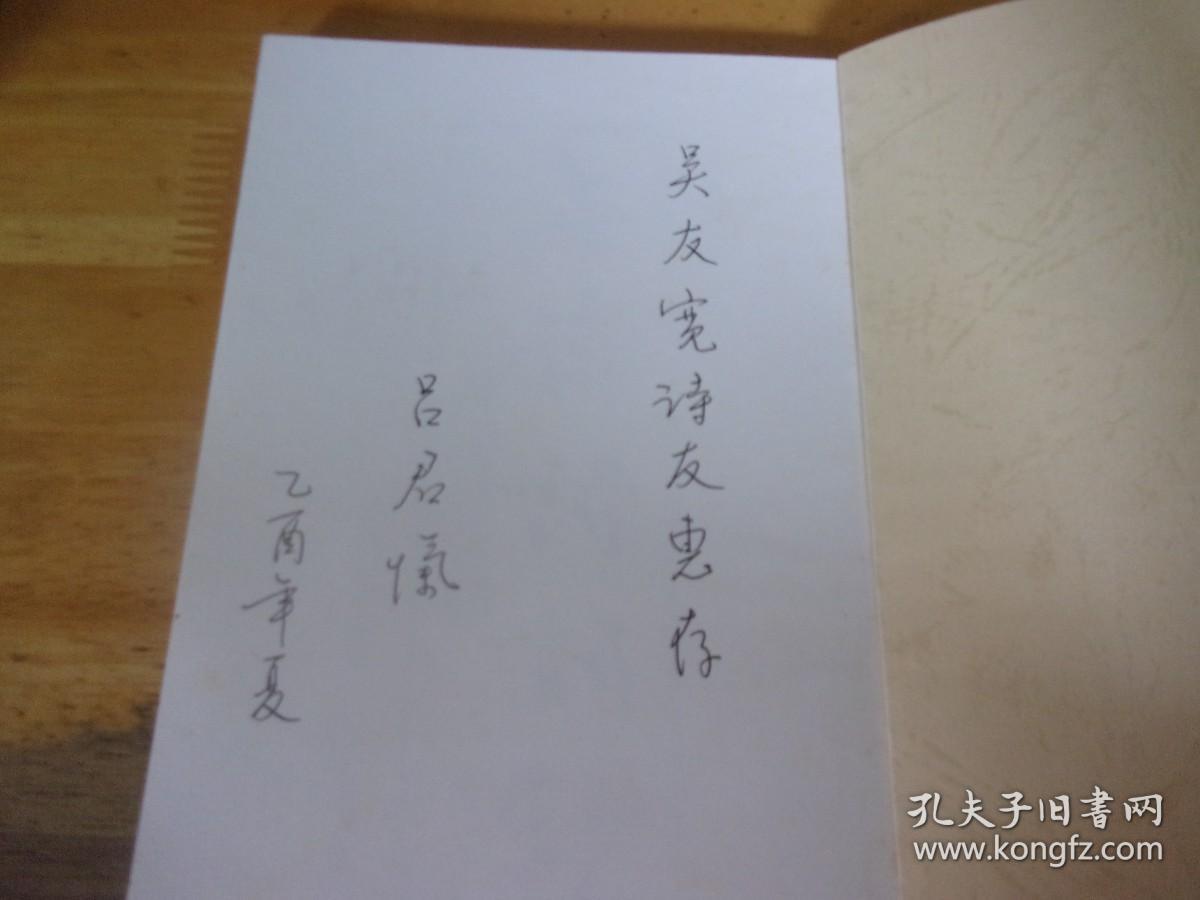 吴友宽诗友惠存
吕君忾
乙酉年夏
孔夫子旧书网
www.kongfz.com